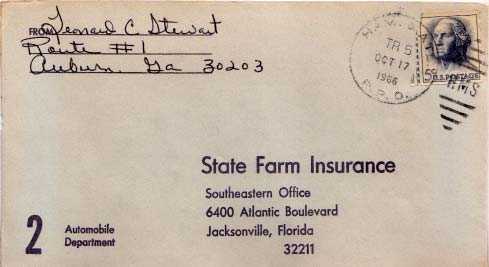 FROM Leonard C. Stewart
Route #1
Auburn, Ga 30203
TR 5
OCT 17
1966
R.P.O.
5¢
U.S. POSTAGE
RMS
State Farm Insurance
Southeastern Office
6400 Atlantic Boulevard
Jacksonville, Florida
32211
2
Automobile
Department